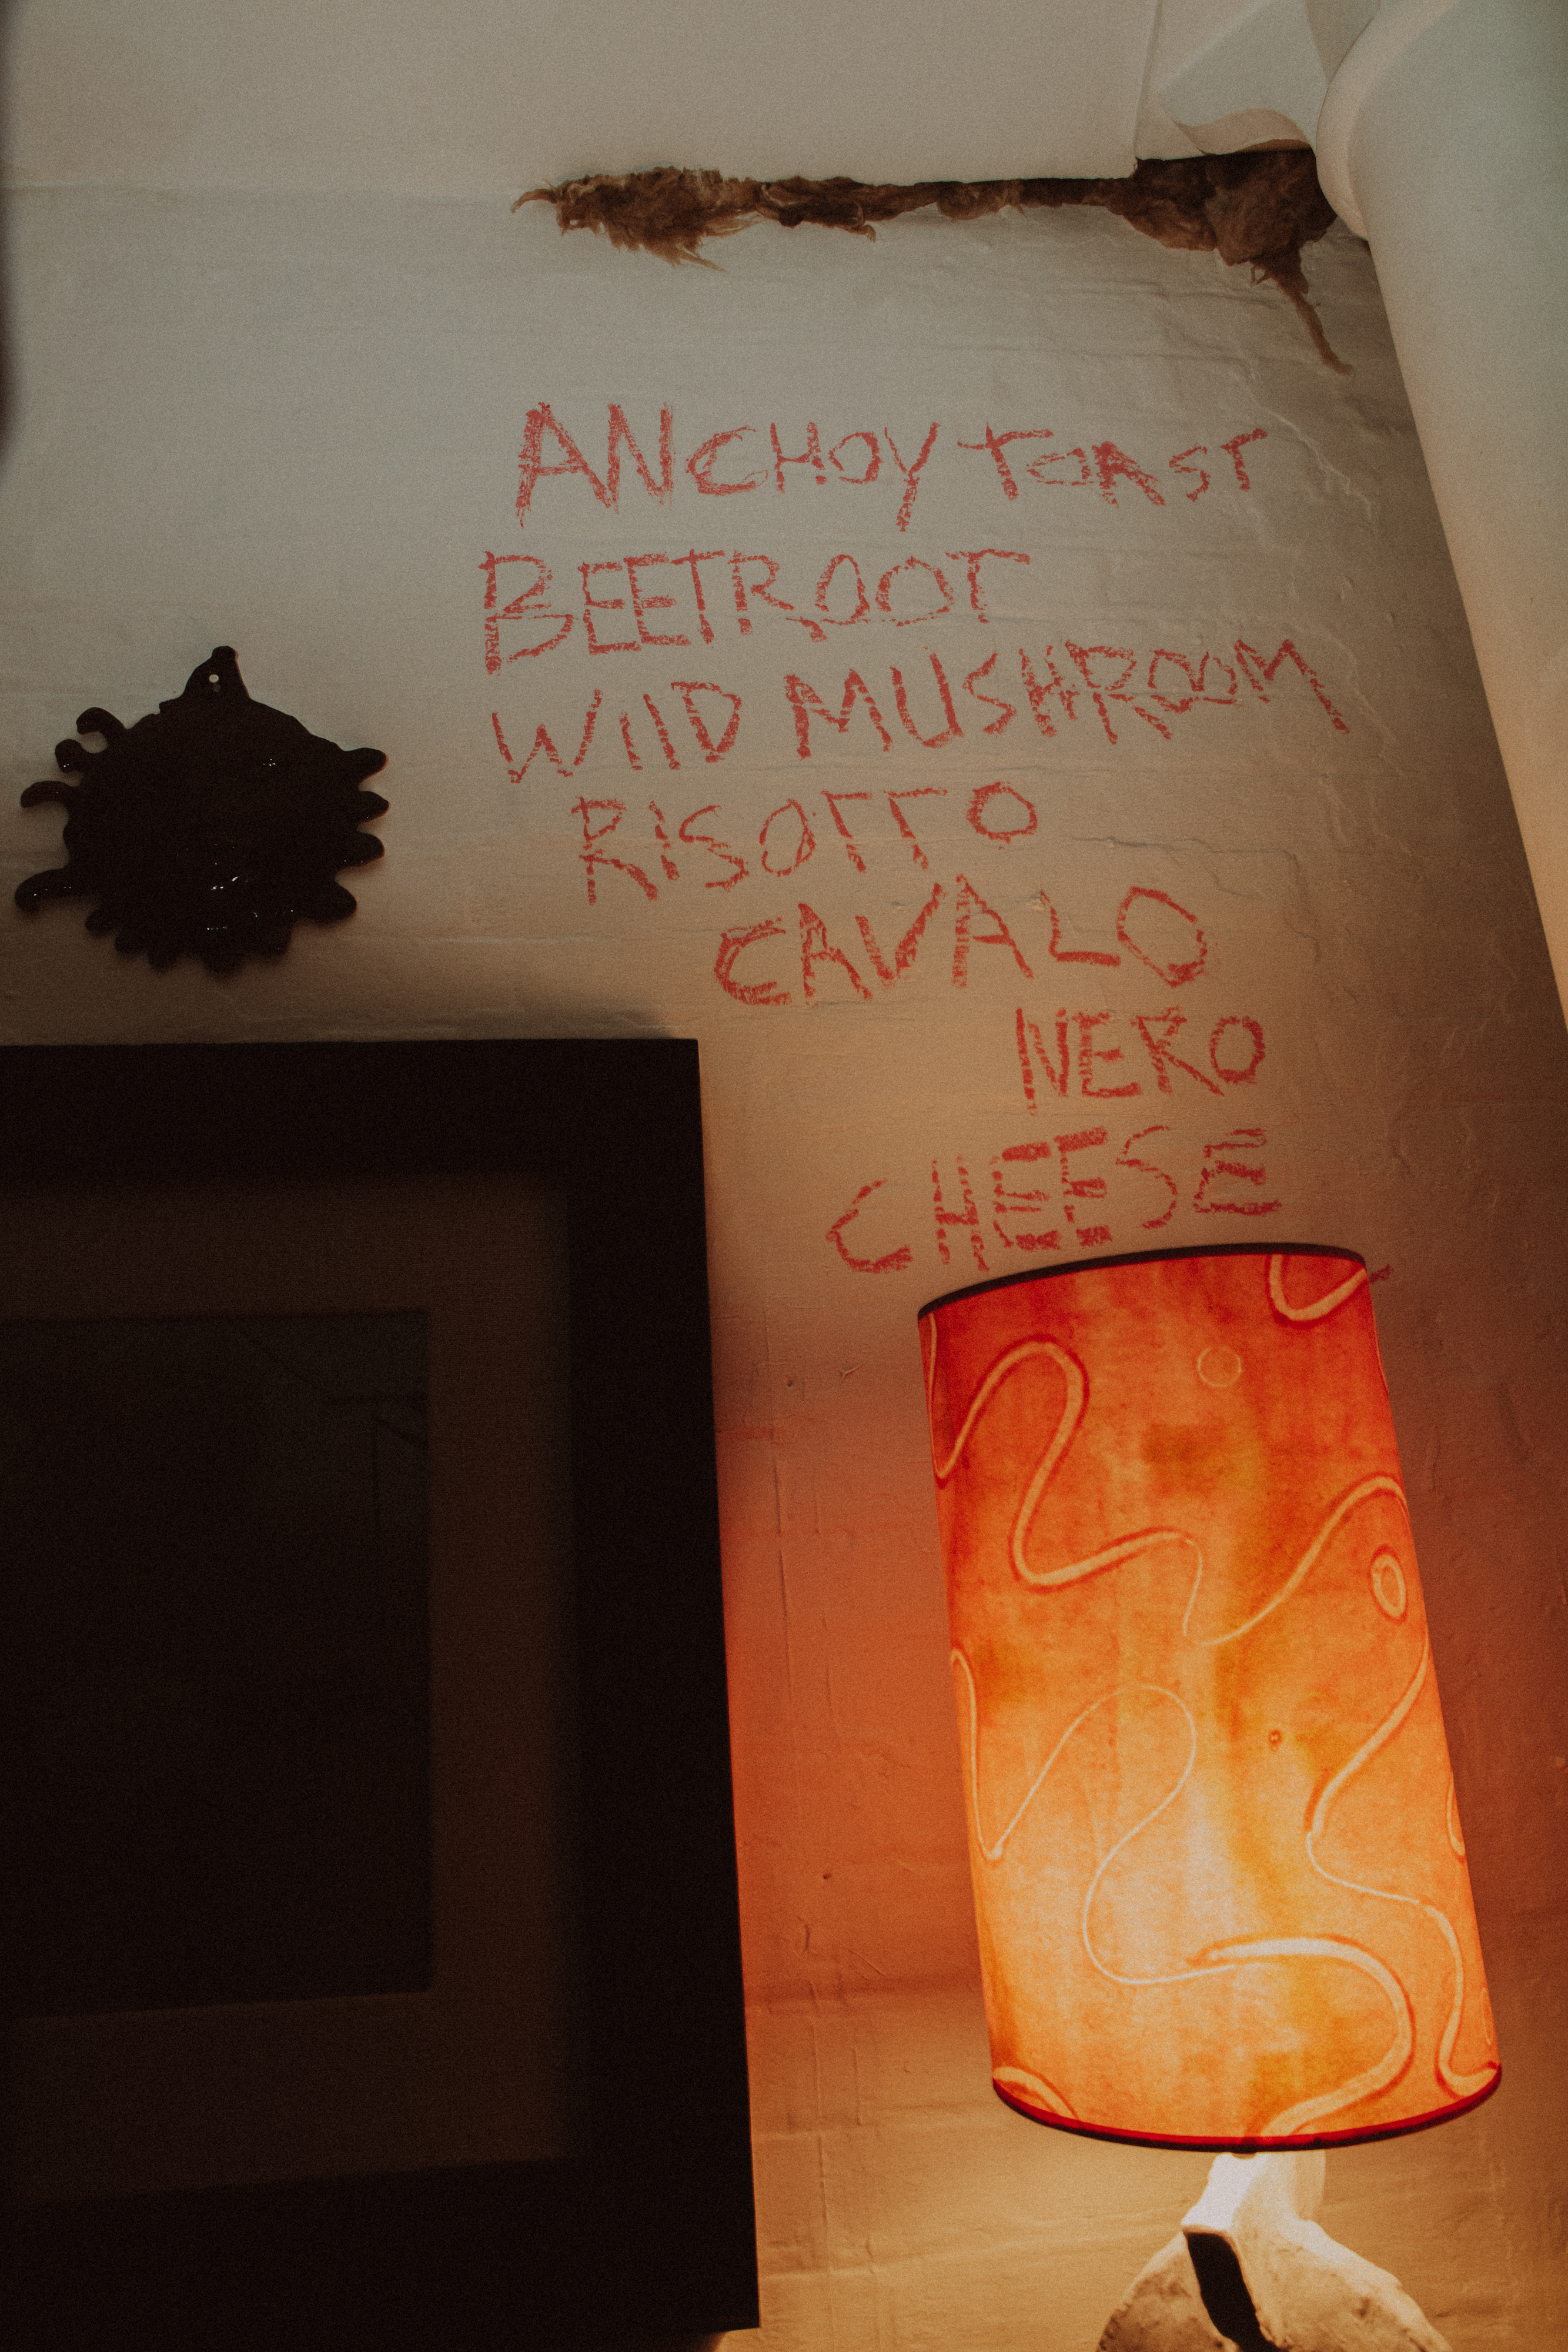 ANCHOY TOAST
BEETROOT
WIlD MUSHROOM
RISOTTO
CAVALO
NERO
CHEESE